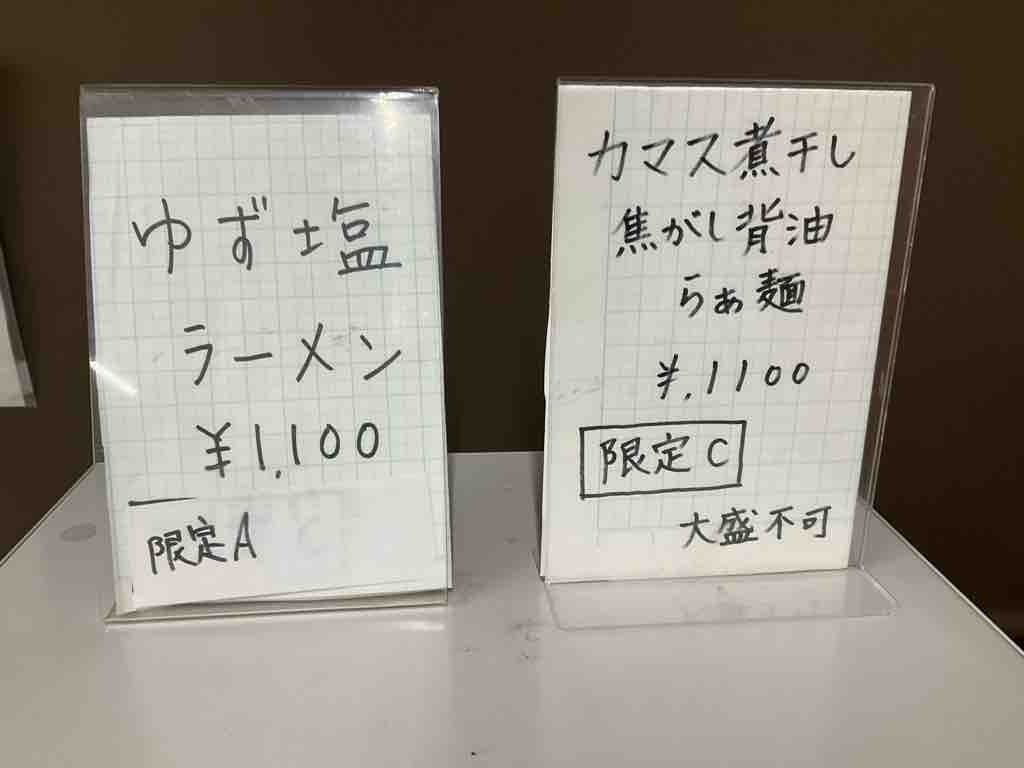 ゆず塩
ラーメン
¥1,100
限定A
カマス煮干し
焦がし背油
らぁ麺
¥,1100
限定C
大盛不可